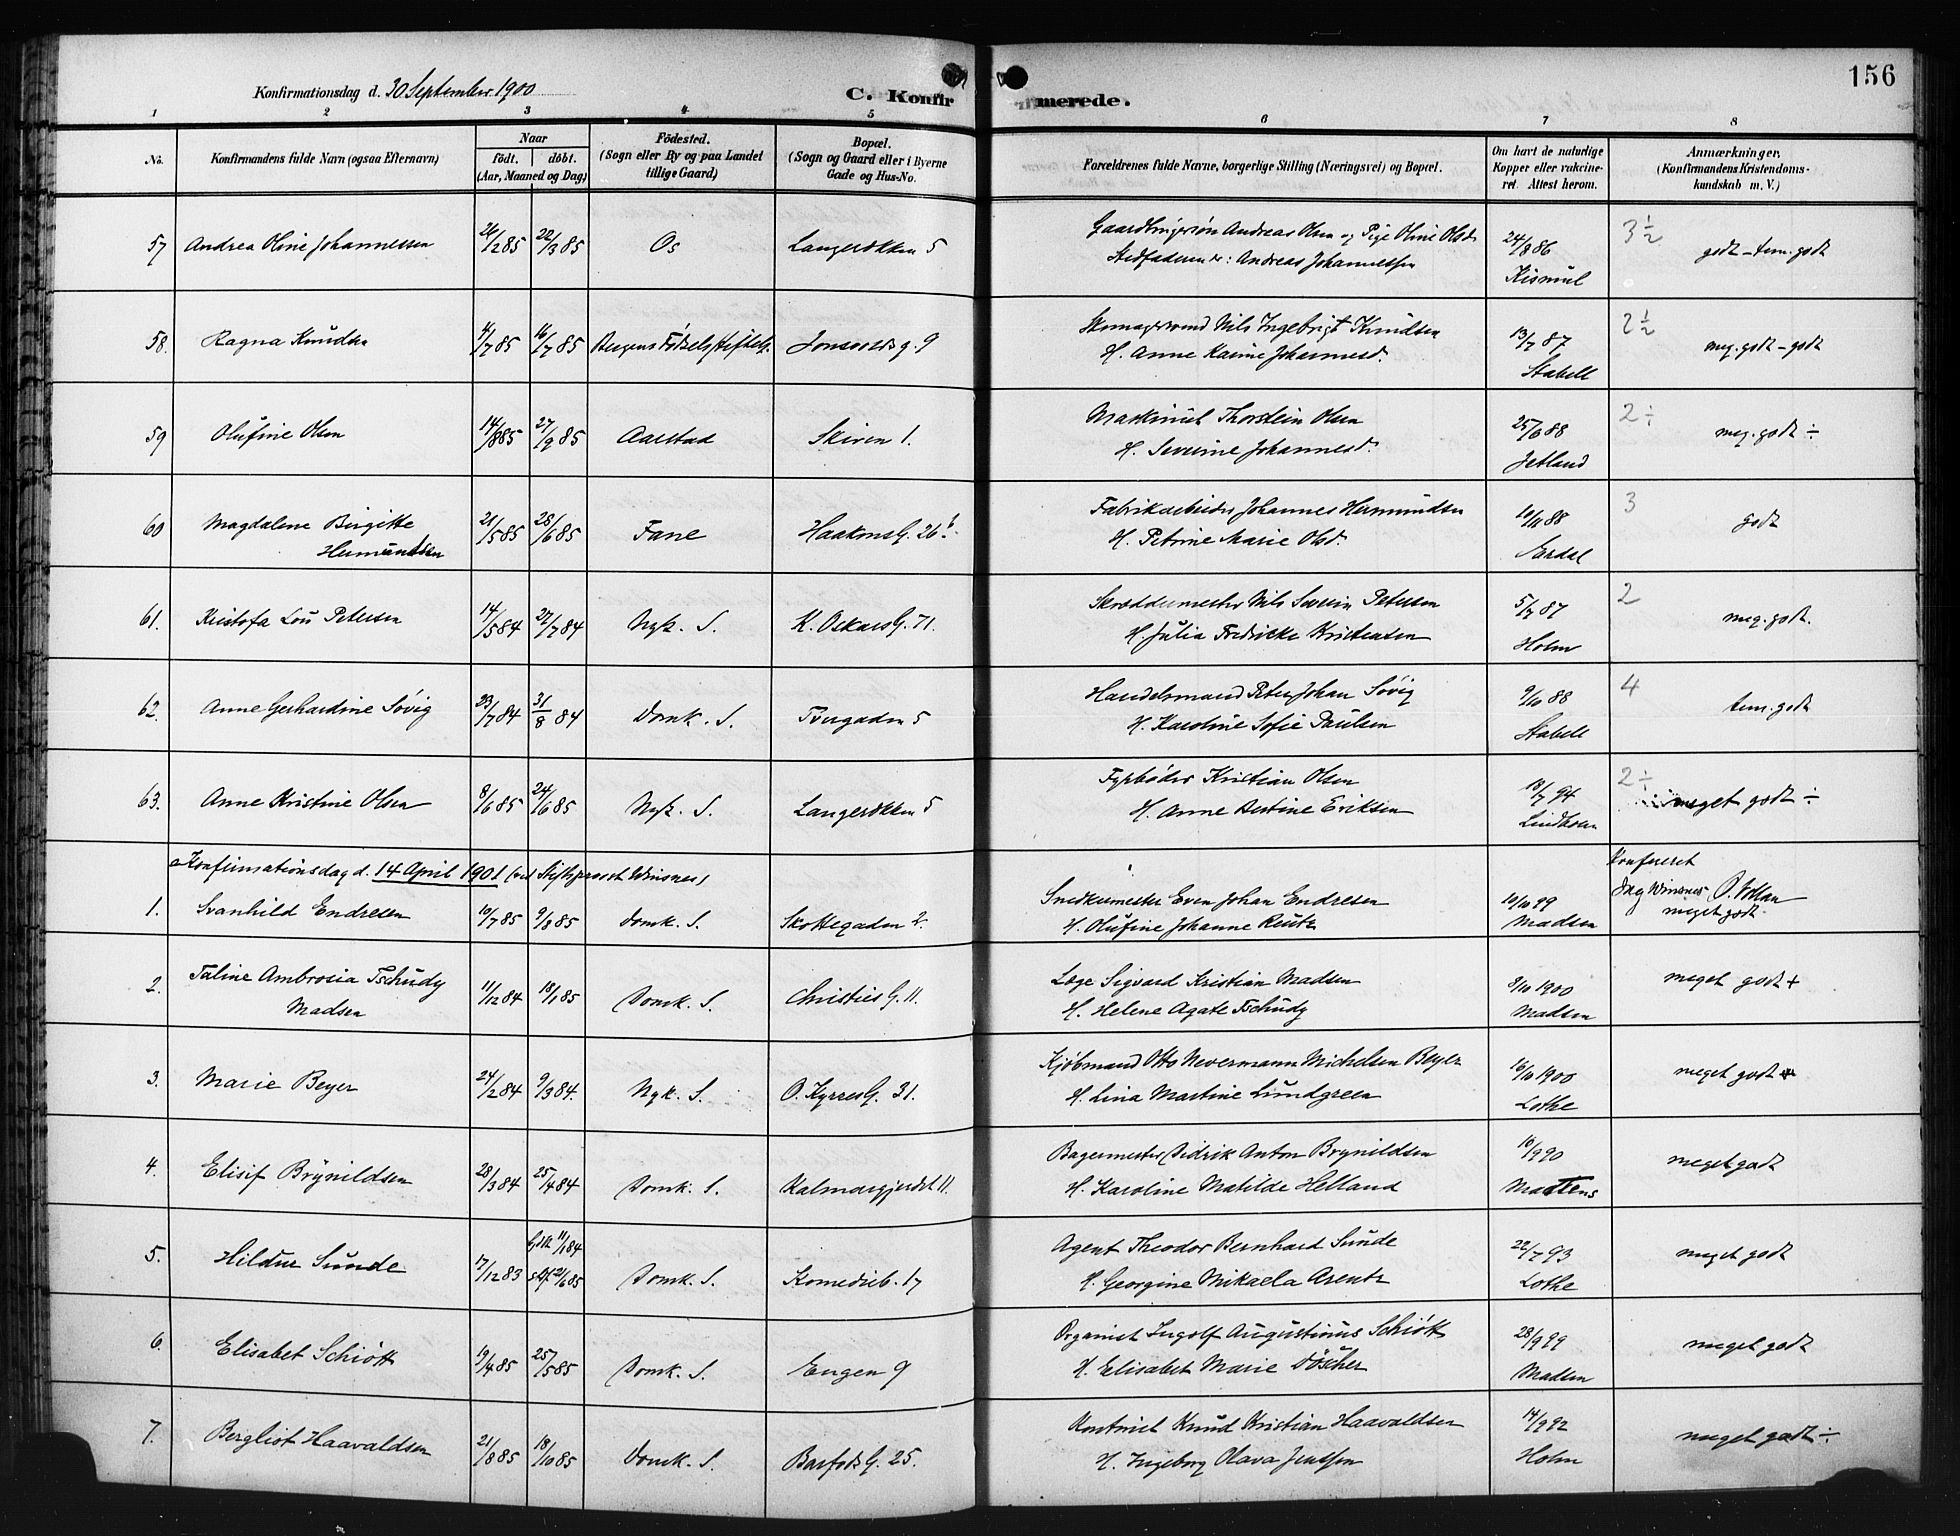 156
Konfirmationsdag d. 30 September 1900
C. Konfirmerede.
1 2 3 4 5 6 7 8
No.
Konfirmandens fulde Navn (ogsaa Efternavn)
Naar
födt. döbt.
(Aar, Maaned og Dag)
Födested.
(Sogn eller By og paa Landet
tillige Gaard)
Bopæl.
(Sogn og Gaard eller i Byerne
Gade og Hus-No.
Forældrenes fulde Navne, borgerlige Stilling (Næringsvei) og Bopæl.
Om havt de naturlige
Kopper eller vakcine-
ret. Attest herom.
Anmærkninger.
(Konfirmandens Kristendoms-
kundskab m. V.)
57 Andrea Oline Johannessen 26/2 85 22/3 85 Os Langerækken 5
Andreas Olsen og Pige Oline Olsd. 24/8 86 3½
Stedfaderen er: Andreas Johannessen godt - tem. godt
Kismul
58. Ragna Knudsen 4/7 85 16/7 85 Bergens Fødselsstiftelse Jonsvoldsg. 9
Skomagersvend Nils Ingebrigt Knudsen 13/7 87 2½
H. Anne Karine Johannesd. meg. godt - godt
Stabell
59 Olufine Olsen 14/8 85 27/9 85 Aarstad Skiven 1.
Maskinist Thorstein Olsen 25/6 88 2÷
H. Severine Johannesd. meg. godt ÷
Jetland
60 Magdalene Birgitte
Hermundsen 21/5 85 28/6 85 Fane Haakons G. 26 b.
Fabrikarbeider Johannes Hermundsen 10/11 88 3
H. Petrine Marie Olsd. godt
Aardal
61. Kristofa Lou Petersen 14/5 84 27/7 84 Nyk. S. K. Oskars G. 71.
Skræddermester Nils Severin Petersen 5/7 87 2
H. Julia Fredrikke Kristensen meg. godt.
Holm
62. Anne Gerhardine Søvig 23/7 84 31/8 84 Domk. S. Tvergaden 5
Handelsmand Peter Johan Søvig 9/10 88 4
H. Karoline Sofie Paulsen tem. godt
Stabell
63. Anne Kristine Olsen 8/6 85 24/6 85 Nyk. S. Langerækken 5
Fyrbøder Kristian Olsen 18/7 94 2÷
H. Anne Eriksen meget godt ÷
Konfirmationsdag d. 14 April 1901 (ved Stiftsprovst Winsnes)
Konfereret
1. Svanhild Endresen 10/7 85 9/8 85 Domk. S. Skottegaden 2.
Snedkermester Even Johan Endresen 10/10 99
H. Olufine Johanne Reutz Madsen meget godt
2. Taline Ambrosia Tschudy
Madsen 11/12 84 18/1 85 Domk. S. Christies G. 11.
Læge Sigvard Kristian Madsen 8/10 1900 meget godt +
H. Helene Agate Tschudy Madsen
3. Marie Beyer 24/2 84 9/3 84. Nyk. S. O. Kyrres G. 31.
Kjøbmand Otto Nevermann Michelsen Beyer 16/10 1900 meget godt +
H. Lina Martine Lundgreen Lothe
4. Elisif Brynildsen 28/3 84 25/4 84 Domk. S. Kalmargjerdet 11.
Bagermester Didrik Anton Brynildsen 16/9 90 meget godt
H. Karoline Matilde Helland Martens
5. Hildur Sunde 17/12 83 Gdk 11/1 84
stf. 21/6 85 Domk. S. Komedieb. 17
Agent Theodor Bernhard Sunde 22/7 93 meget godt
H. Georgine Mikaela Arentz Lothe
6. Elisabet Schiött 19/4 85 25/5 85 Domk. S. Engen 9
Organist Ingolf Augustinus Schiött 28/9 99 meget godt
H. Elisabet Marie Döscher Madsen
7. Bergliot Haavaldsen 21/8 85 18/10 85 Domk. S. Barfods G. 25.
Kontorist Knud Kristian Haavaldsen 14/9 92 meget godt ÷
H. Ingeborg Olava Jentsen Holm